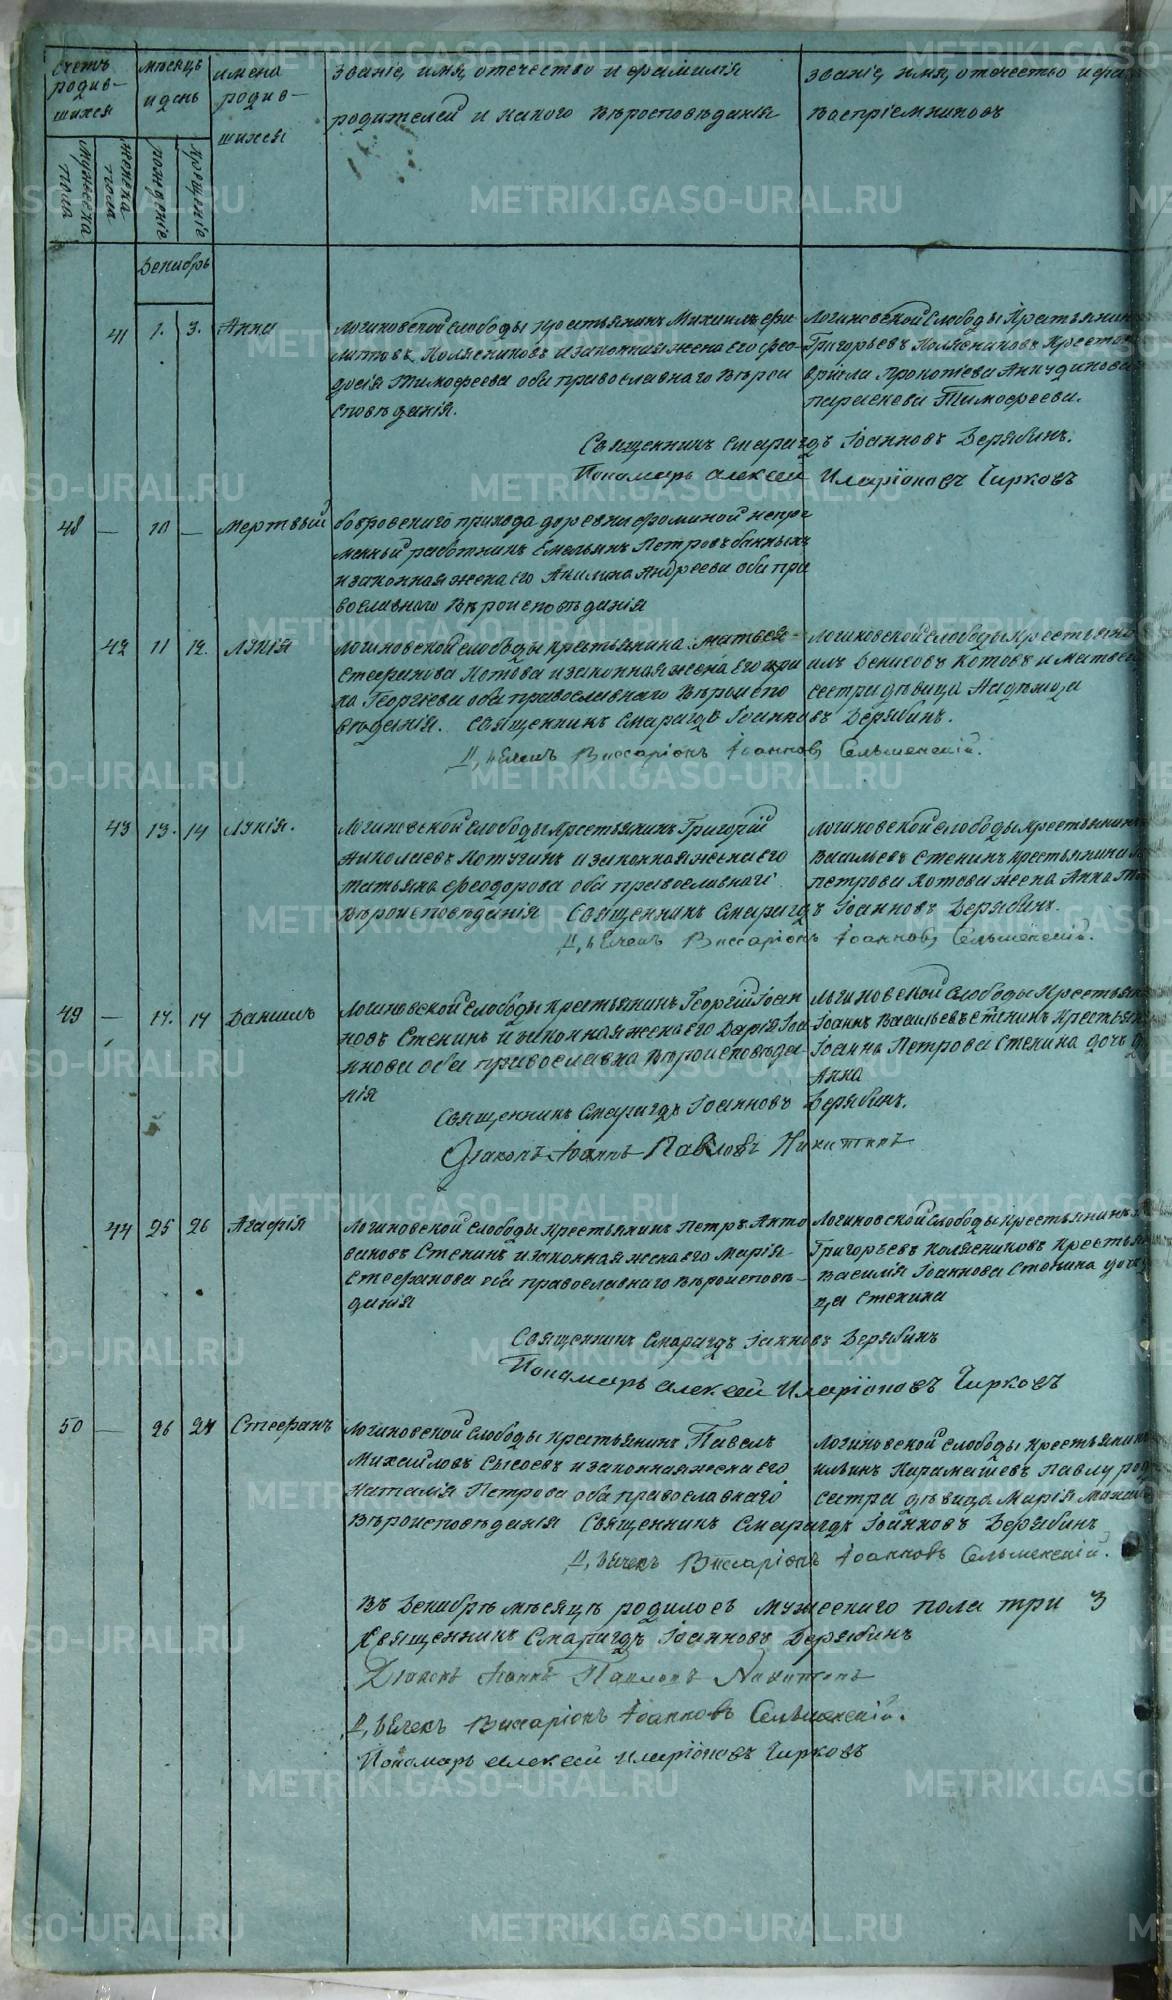 Счетъ родив-шихся
мѣсяцъ и день
имена родив-шихся
Званіе, имя, отечество и фамилія
родителей и какого вѣроисповѣданія
Званіе, имя, отечество и фа
Воспріемниковъ
мужеска пола
женска пола
рожденіе
крещеніе
Декабрь
41 1. 3. Анна
Логиновской слободы крестьянинъ Михаилъ Фи-
липповъ Колясниковъ и законная жена его Фео-
досія Тимофеева оба православнаго вѣрои
сповѣданія.
Логиновской слободы Крестьянинъ
Григорьевъ Колясниковъ Крестья
Прокопіева
параскева Тимофеева.
Священникъ Смарагдъ Іоанновъ Дерябинъ.
Пономарь Алексей Иларіоновъ Чирковъ
48 — 10 — Мертвый
бобровскаго прихода деревни Фоминой непре
менный работникъ Емельянъ Петровъ
и законная жена его Акилина Андреева оба пра
вославнаго Вѣроисповѣданія
42 11 12. Лукія
Логиновской слободы крестьянина Матвея
Стефанова Котова и законная жена его Ири
на Георгіева оба православнаго Вѣроиспо
вѣданія. Священникъ Смарагдъ Іоанновъ Дерябинъ.
Логиновской слободы Крестьяни
илъ Денисовъ Котовъ и Матвея
сестра дѣвица Надежда
Д,ьячекъ Виссаріонъ Іоанновъ Сельменскій.
43 13. 14 Лукія.
Логиновской слободы Крестьянинъ Григорій
Николаевъ Котугинъ и законная жена его
Татьяна Феодорова оба православнаго
Вѣроисповѣданія Священникъ Смарагдъ Іоанновъ Дерябинъ.
Логиновской слободы Крестьянинъ
Васильевъ Стенинъ крестьянина
петрова Котова жена Анна
Д,ьячекъ Виссаріонъ Іоанновъ Сельменскій.
49 — 17. 17 Даниилъ
Логиновской слободы Крестьянинъ Георгій Іоан
новъ Стенинъ и законная жена его Дарія Іоа
ннова оба православна Вѣроисповѣда
нія
Логиновской слободы Крестьян
Іоаннъ Васильевъ Стенинъ Крестьян
Іоанна Петрова Стенина дочь
Анна
Священникъ Смарагдъ Іоанновъ Дерябинъ.
Діаконъ Іоаннъ Павловъ Никитинъ
44 25 26 Агафія
Логиновской слободы Крестьянинъ Петръ Анто
Стенинъ и законная жена его Марія
Стефанова оба православнаго Вѣроисповѣ-
данія
Логиновской слободы крестьянинъ
Григорьевъ Колясниковъ Крестья
Василія Іоаннова Стенина дочь
ца Стенина
Священникъ Смарагдъ Іаинновъ Дерябинъ
Пономарь Алексей Иларіоновъ Чирковъ
50 — 26 27 Стефанъ
Логиновской слободы Крестьянинъ Павелъ
Михайловъ Сысоевъ и законная жена его
Наталія Петрова оба православнаго
Вѣроисповѣданія Священникъ Смарагдъ Іоанновъ Дерябинъ
Логиновской слободы Крестьянинъ
ильинъ Карамашевъ Павлу род
сестра дѣвица Марія
Д,ьячекъ Виссаріонъ Іоанновъ Сельменскій.
Въ Декабрѣ мѣсяцѣ родилось мужескаго пола три 3
Священникъ Смарагдъ Іоанновъ Дерябинъ
Діаконъ Іоаннъ Павловъ Никитинъ
Д,ьячекъ Виссаріонъ Іоанновъ Сельменскій.
Пономарь Алексей Иларіоновъ Чирковъ
METRIKI.GASO-URAL.RU